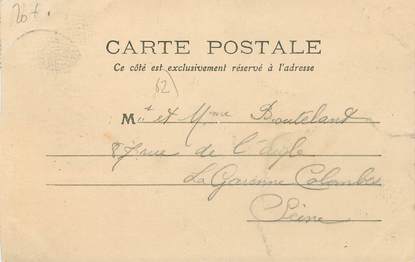 20f.
CARTE POSTALE
Ce côté est exclusivement réservé à l'adresse
(62)
Mr et Mme Boutelant
87 rue de l'Aigle
La Garenne Colombes
Seine